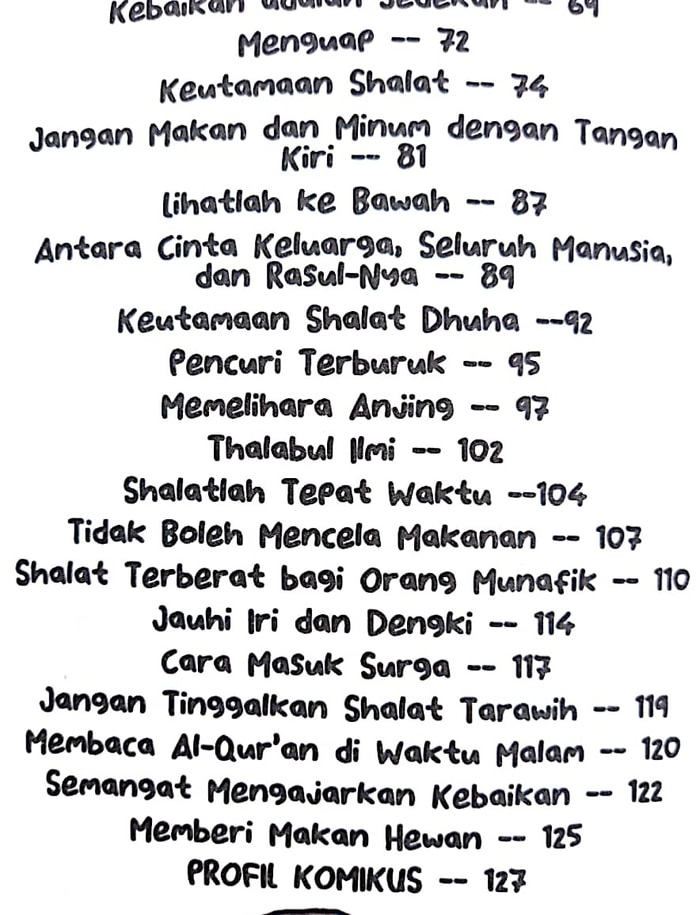 Kebaikan adalah Sedekah -- 69
Menguap -- 72
Keutamaan Shalat -- 74
Jangan Makan dan Minum dengan Tangan
Kiri -- 81
Lihatlah ke Bawah -- 87
Antara Cinta Keluarga, Seluruh Manusia,
dan Rasul-Nya -- 89
Keutamaan Shalat Dhuha --92
Pencuri Terburuk -- 95
Memelihara Anjing -- 97
Thalabul Ilmi -- 102
Shalatlah Tepat Waktu --104
Tidak Boleh Mencela Makanan -- 107
Shalat Terberat bagi Orang Munafik -- 110
Jauhi Iri dan Dengki -- 114
Cara Masuk Surga -- 117
Jangan Tinggalkan Shalat Tarawih -- 119
Membaca Al-Qur'an di Waktu Malam -- 120
Semangat Mengajarkan Kebaikan -- 122
Memberi Makan Hewan -- 125
PROFIL KOMIKUS -- 127